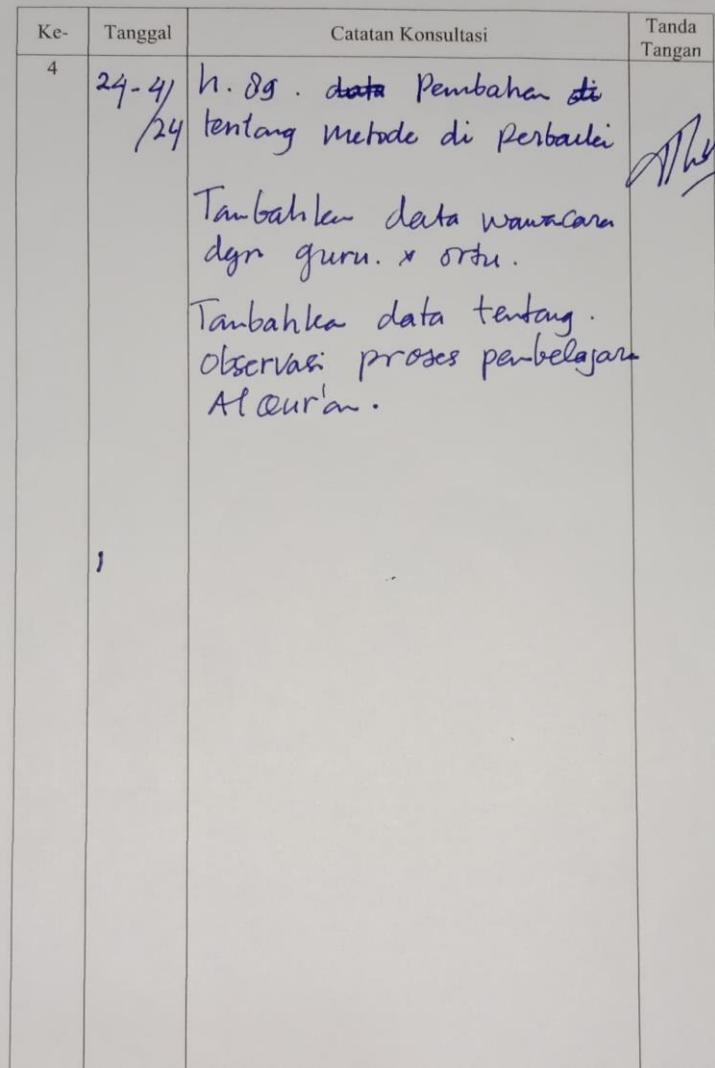 Ke- Tanggal Catatan Konsultasi Tanda Tangan
4 24-4/ h. 89. data Pembahan di
/24 tentang metode di perbaiki
Tambahkan data wawacara
dgn guru. x ortu.
Tambahka data tentang.
Observasi proses pembelajaran
Al Qur'an.